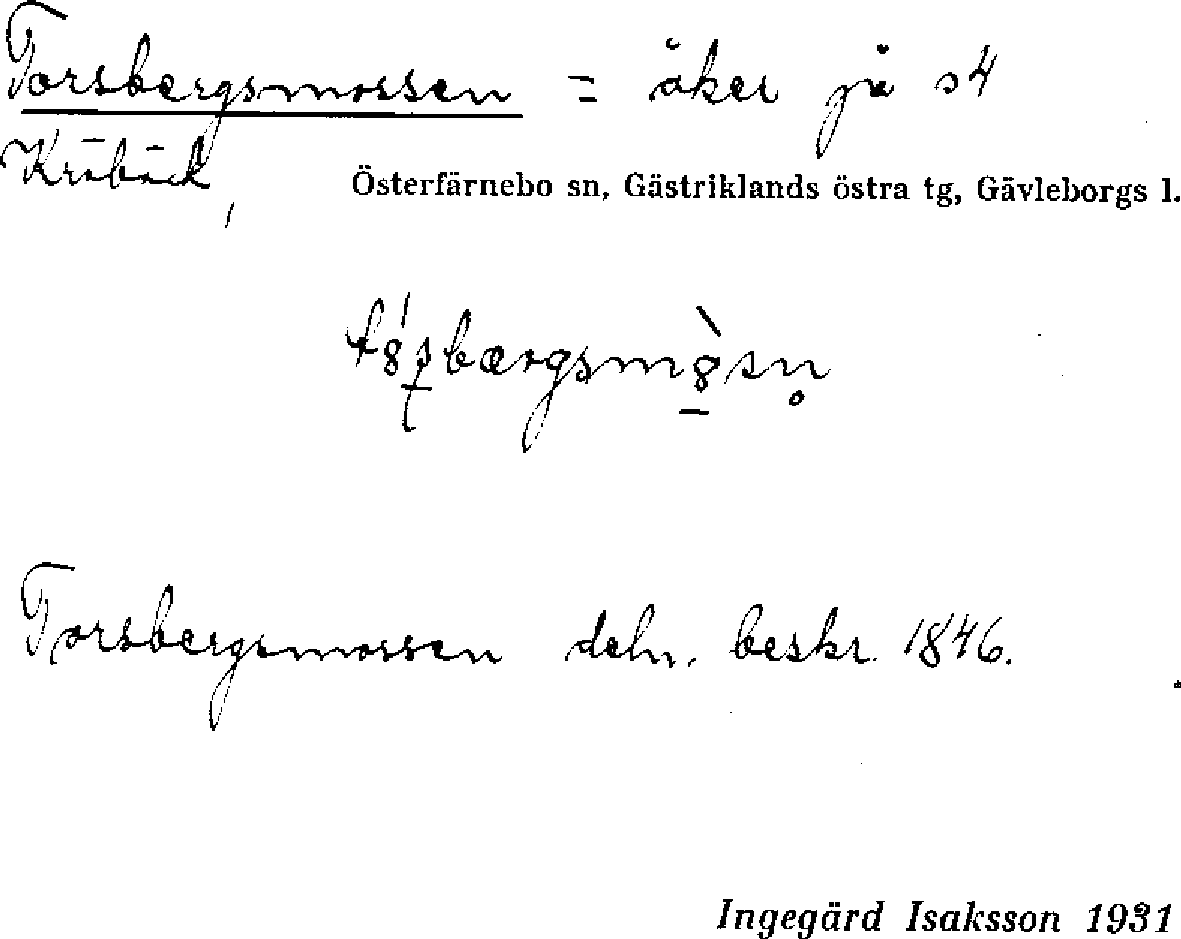 Torsbergsmossen = åker på s4
Kräbäck,
Österfärnebo sn, Gästriklands östra tg, Gävleborgs l.
Torsbergsmossen deln. beskr. 1846.
Ingegärd Isaksson 1931